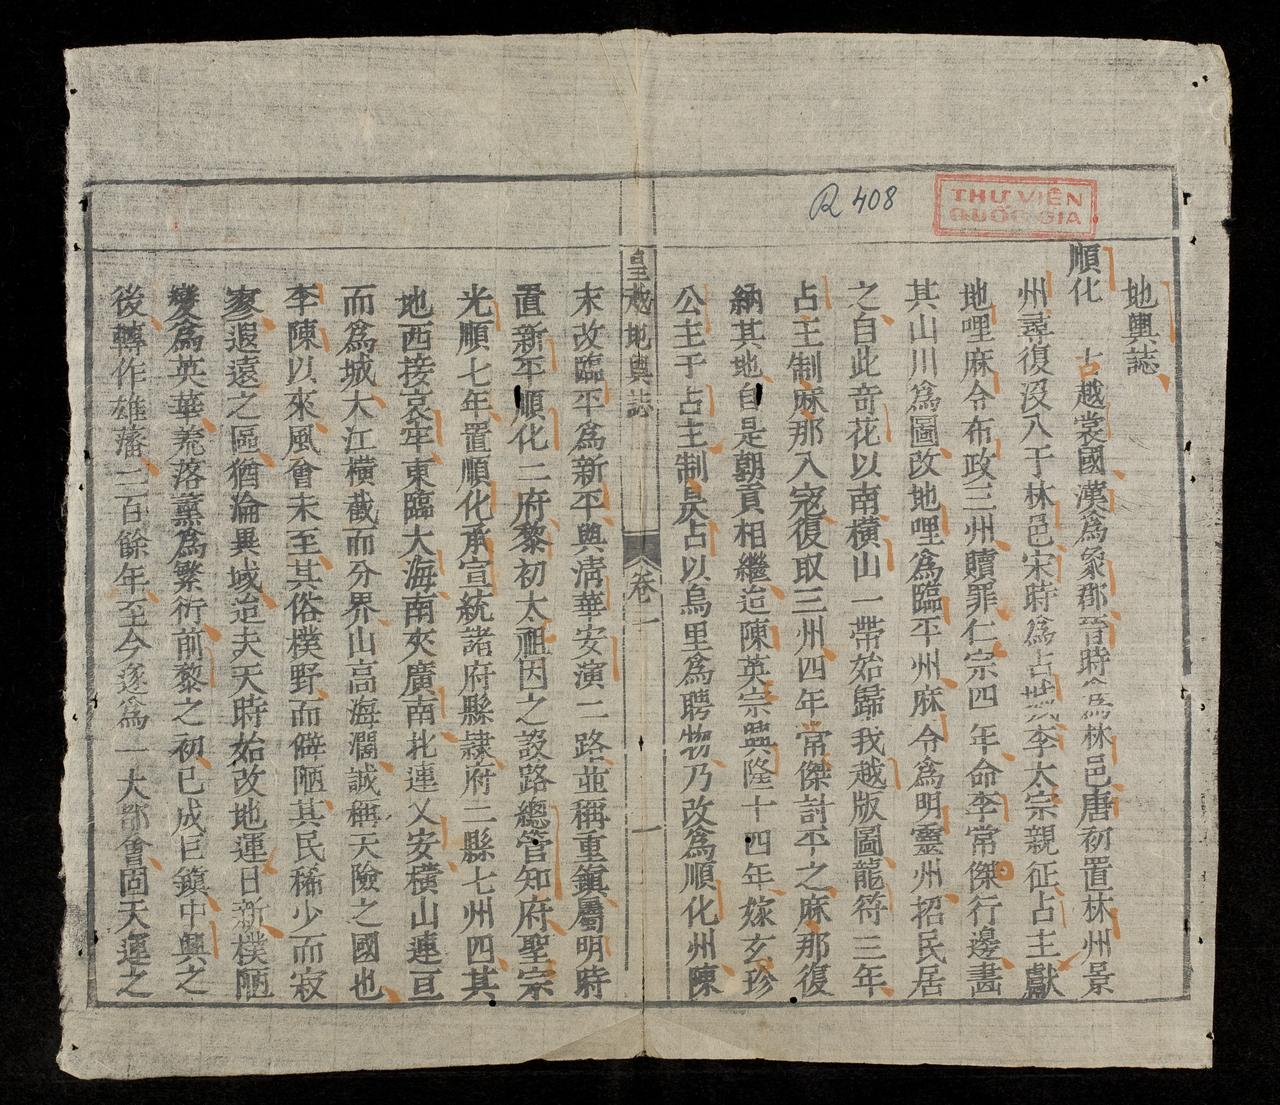 R 408
THƯ VIỆN
QUỐC GIA
地輿誌
順化 古越裳國漢為象郡晋時為林邑唐初置林州景
州尋復没入于林邑宋時為占城李太宗親征占主獻
地哩麻令布政三州贖罪仁宗四年命李常傑行邊畵
其山川爲圖改地哩爲臨平州麻令爲明靈州招民居
之自此竒花以南横山一帶始歸我越版圖龍符三年
占主制麻那入寇復取三州四年常傑討平之麻那復
納其地自是朝貢相繼迨陳英宗興隆十四年嫁玄珍
公主于占主制旻占以烏里爲聘物乃改爲順化州陳
皇越地輿誌 卷一 一
末改臨平爲新平與清華安演二路並稱重鎮屬明時
置新平順化二府黎初太祖因之設路總管知府聖宗
光順七年置順化承宣統諸府縣隷府二縣七州四其
地西接哀牢東臨大海南夾廣南北連乂安横山連亘
而爲城大江横截而分界山高海濶誠稱天險之國也
李陳以來風會未至其俗樸野而僻陋其民稀少而寂
寥遐遠之區猶淪異域迨夫天時始改地運日新樸陋
變爲英華荒落薰爲繁衍前黎之初已成巨鎮中興之
後轉作雄藩二百餘年至今遂爲一大都會固天運之